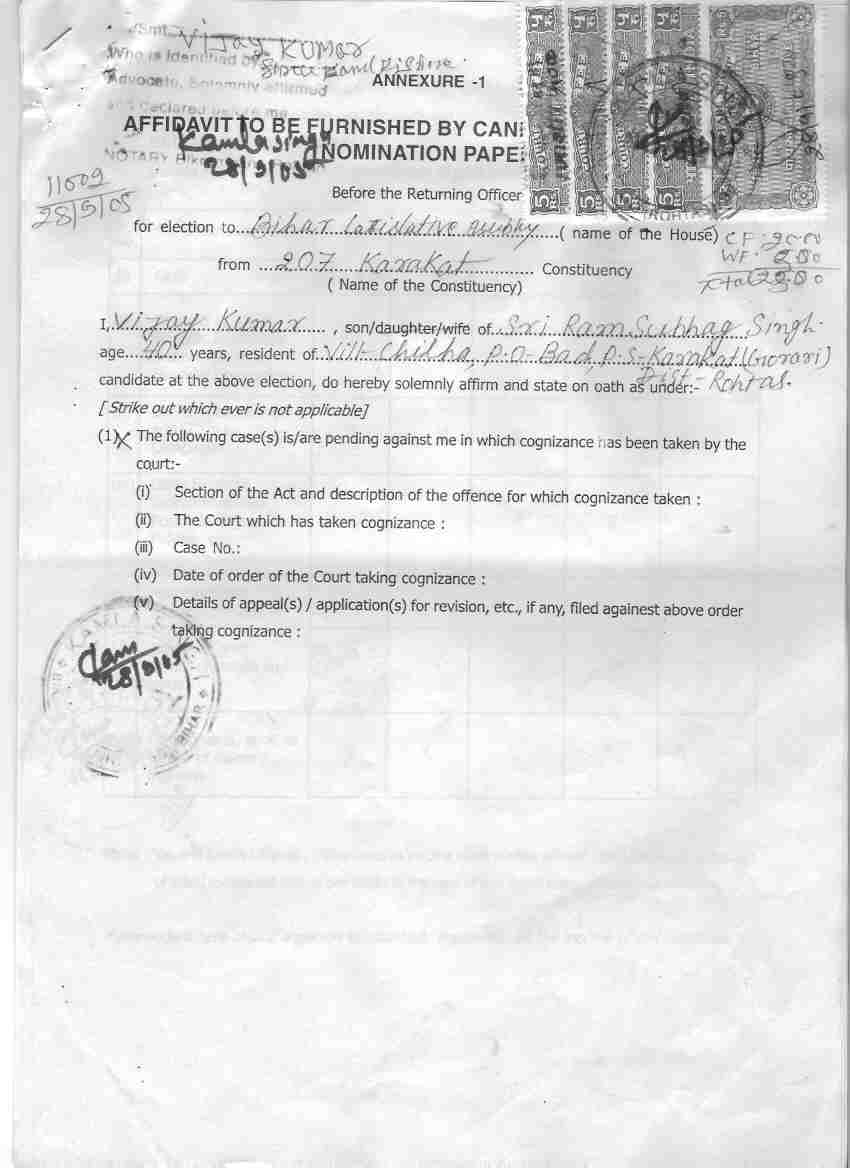 /Smt. Vijay Kumar
Who is Identified by
Advocate, Solemnly affirmed
and Declared before me
ANNEXURE -1
AFFIDAVIT TO BE FURNISHED BY CAN
NOMINATION PAPE
Kamla Singh
28/9/05
NOTARY
11009
28/9/05
Before the Returning Officer
for election to....Bihar Legislative.......( name of the House)
CF
WF
Total
from ....207 Karakat............... Constituency
( Name of the Constituency)
I, Vijay Kumar......, son/daughter/wife of...Sri Ram Subhag Singh
age...40... years, resident of Vill- Chilha, P.O- Bad, P.S- Karakat (Gorari)
Dist- Rohtas.
candidate at the above election, do hereby solemnly affirm and state on oath as under:-
[ Strike out which ever is not applicable]
(1) The following case(s) is/are pending against me in which cognizance has been taken by the
court:-
(i) Section of the Act and description of the offence for which cognizance taken :
(ii) The Court which has taken cognizance :
(iii) Case No.:
(iv) Date of order of the Court taking cognizance :
(v) Details of appeal(s) / application(s) for revision, etc., if any, filed againest above order
taking cognizance :
28/9/05
BIHAR
COURT FEE
5 Rs
COURT FEE
5 Rs
COURT FEE
5 Rs
COURT FEE
5 Rs